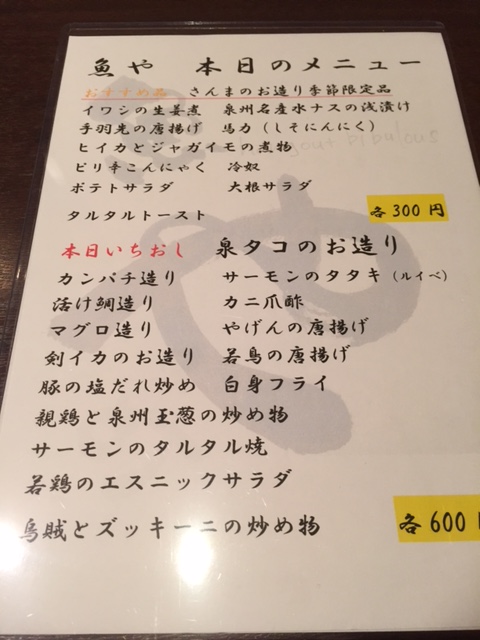 魚や 本日のメニュー
おすすめ品 さんまのお造り季節限定品
イワシの生姜煮 泉州名産水ナスの浅漬け
手羽先の唐揚げ 馬力（しそにんにく）
ヒイカとジャガイモの煮物
ピリ辛こんにゃく 冷奴
ポテトサラダ 大根サラダ
タルタルトースト
各300円
本日いちおし 泉タコのお造り
カンパチ造り サーモンのタタキ（ルイベ）
活け鯛造り カニ爪酢
マグロ造り やげんの唐揚げ
剣イカのお造り 若鳥の唐揚げ
豚の塩だれ炒め 白身フライ
親鶏と泉州玉葱の炒め物
サーモンのタルタル焼
若鶏のエスニックサラダ
烏賊とズッキーニの炒め物
各600